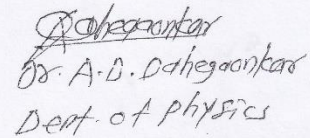 Dahegaonkar
Dr. A.D. Dahegaonkar
Dept. of physics